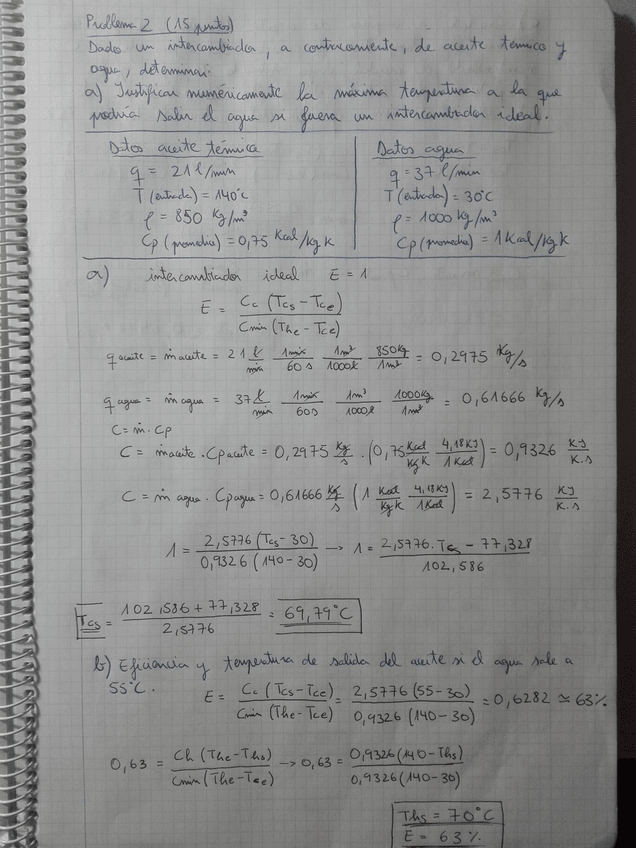 Problema 2 (15 puntos)
Dado un intercambiador, a contracorriente, de aceite térmico y
agua, determinar:
a) Justificar numéricamente la máxima temperatura a la que
podría salir el agua si fuera un intercambiador ideal.
Datos aceite térmico
q = 21 l/min
T (entrada) = 140°C
ρ = 850 Kg/m³
Cp (promedio) = 0,75 Kcal/Kg K
Datos agua
q = 37 l/min
T (entrada) = 30°C
ρ = 1000 kg/m³
Cp (promedio) = 1 Kcal/Kg K
a) intercambiador ideal E = 1
E = Cc (Tcs - Tce) / Cmin (The - Tce)
q aceite = ṁ aceite = 21 l/min · 1min/60 s · 1m³/1000l · 850Kg/1m³ = 0,2975 Kg/s
q agua = ṁ agua = 37 l/min · 1min/60s · 1m³/1000l · 1000Kg/1m³ = 0,61666 Kg/s
C = ṁ · Cp
C = ṁ aceite · Cp aceite = 0,2975 Kg/s · (0,75 Kcal/Kg K · 4,18 KJ/1 Kcal) = 0,9326 KJ/K.s
C = ṁ agua · Cp agua = 0,61666 Kg/s (1 Kcal/Kg K · 4,18 KJ/1 Kcal) = 2,5776 KJ/K.s
1 = 2,5776 (Tcs - 30) / 0,9326 (140 - 30) → 1 = 2,5776 · Tcs - 77,328 / 102,586
Tcs = 102,586 + 77,328 / 2,5776 = 69,79°C
b) Eficiencia y temperatura de salida del aceite si el agua sale a
55°C. E = Cc (Tcs - Tce) / Cmin (The - Tce) = 2,5776 (55 - 30) / 0,9326 (140 - 30) = 0,6282 ≃ 63%
0,63 = Ch (The - Ths) / Cmin (The - Tce) → 0,63 = 0,9326 (140 - Ths) / 0,9326 (140 - 30)
Ths = 70°C
E = 63%